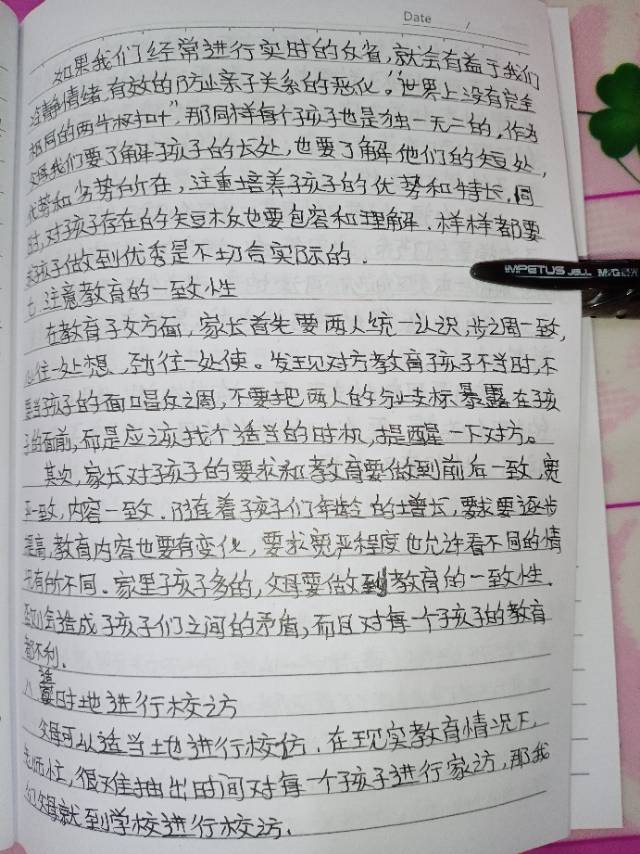 Date /
如果我们经常进行实时的反省,就会有益于我们
冷静情绪,有效的防止亲子关系的恶化。"世界上没有完全
相同的两片树叶",那同样每个子孩子也是独一无二的,作为
父母我们要了解孩子的长处,也要了解他们的短处,
优势和劣势所在,注重培养孩子的优势和特长,同
时,对孩子存在的短板也要包容和理解.样样都要
求孩子做到优秀是不切合实际的.
七.注意教育的一致性
在教育子女方面,家长首先要两人统一认识,步调一致,
心往一处想,劲往一处使。发现对方教育孩子不当时,不
要当孩子的面唱反调,不要把两人的分歧暴露在孩
子的面前,而是应该找个适当的时机,提醒一下对方。
其次,家长对子孩子的要求和教育要做到前后一致,宽
严一致,内容一致.随着孩子们年龄的增长,要求要逐步
提高,教育内容也要有变化,要求宽严程度也允许看不同的情
况有所不同.家里子孩子多的,父母要做到教育的一致性.
否则会造成子孩子们之间的矛盾,而且对每一个子孩子的教育
都不利.
八.适时地进行校访
父母可以适当地进行校访.在现实教育情况下,
老师忙,很难抽出时间对每一个子孩子进行家访,那我
们父母就到学校进行校访.
IMPETUS JELL M&G